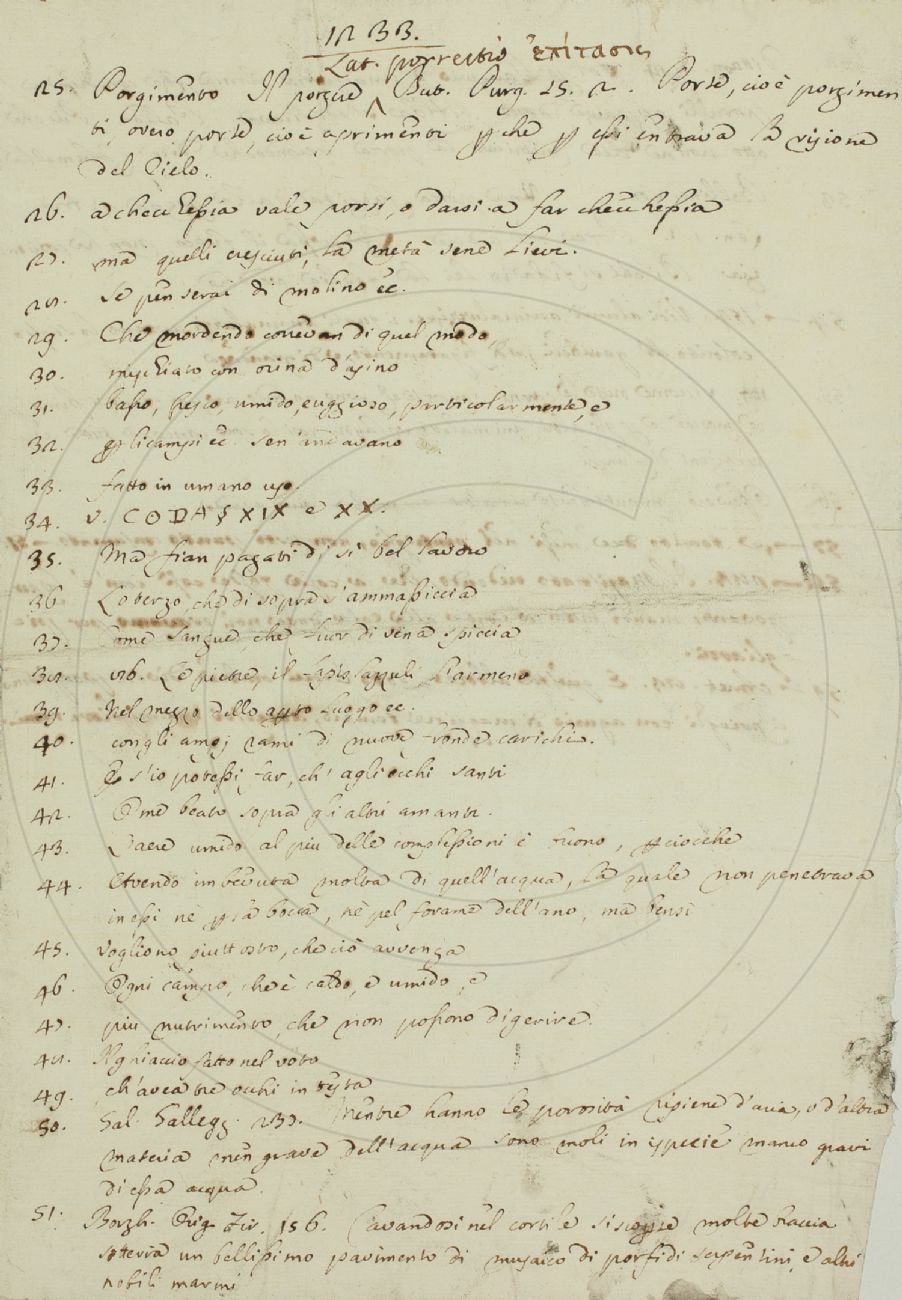 1233.
Lat. porrectio ἐπίτασις
25. Porgimento Il porgere ^ But. Purg. 15. 2. Porse, cioè porgimen
ti, overo porse, cioè aprimenti per che per essi entrava la visione
del Cielo.
26. a checchessia vale porsi, o darsi a far checchessia
27. ma quelli cresciuti, la metà sene lievi.
28. Se penserai di molino ec.
29. Che mordendo correvan di quel modo,
30. mischiato con orina d'asino
31. basso, fresco, umido, e uggioso, particolarmente, e
32. per li campi ec. sen'andavano
33. fatto in umano uso.
34. v. CODAS XIX e XX.
35. Ma fian pagati di sì bel lavoro
36 Lo terzo, che di sopra s'ammassiccia
37. Come sangue, che fuor di vena spiccia
38. 86. Le pietre, il lapis lazzuli, l'armeno
39. Nel mezzo dello luogo ec.
40. con gli rami di nuove fronde carichi.
41. E s'io potessi far, ch'agli occhi santi
42. Ome beato sopra gli altri amanti.
43. L'aere umido al più delle complessioni è buono, perciocchè
44. Avendo imbevuta molta di quell'acqua, la quale non penetrava
in essi nè per la bocca, nè pel forame dell'ano, ma bensì
45. Vogliono piuttosto, che ciò avvenga
46. Ogni campo, che è caldo, e umido, e
47. più nutrimento, che non possono digerire.
48. Il ghiaccio fatto nel voto
49. ch'avea tre occhi in testa
50. Gal. Gallegg. 237. Mentre hanno le porosità ripiene d'aria, o d'altra
materia men grave dell'acqua sono moli in ispecie manco gravi
di essa acqua.
51. Borgh. Orig. Fir. 156. Cavandosi nel cortile si scoperse molte braccia
sotterra un bellissimo pavimento di musaico di porfidi serpentini, e altri
nobili marmi